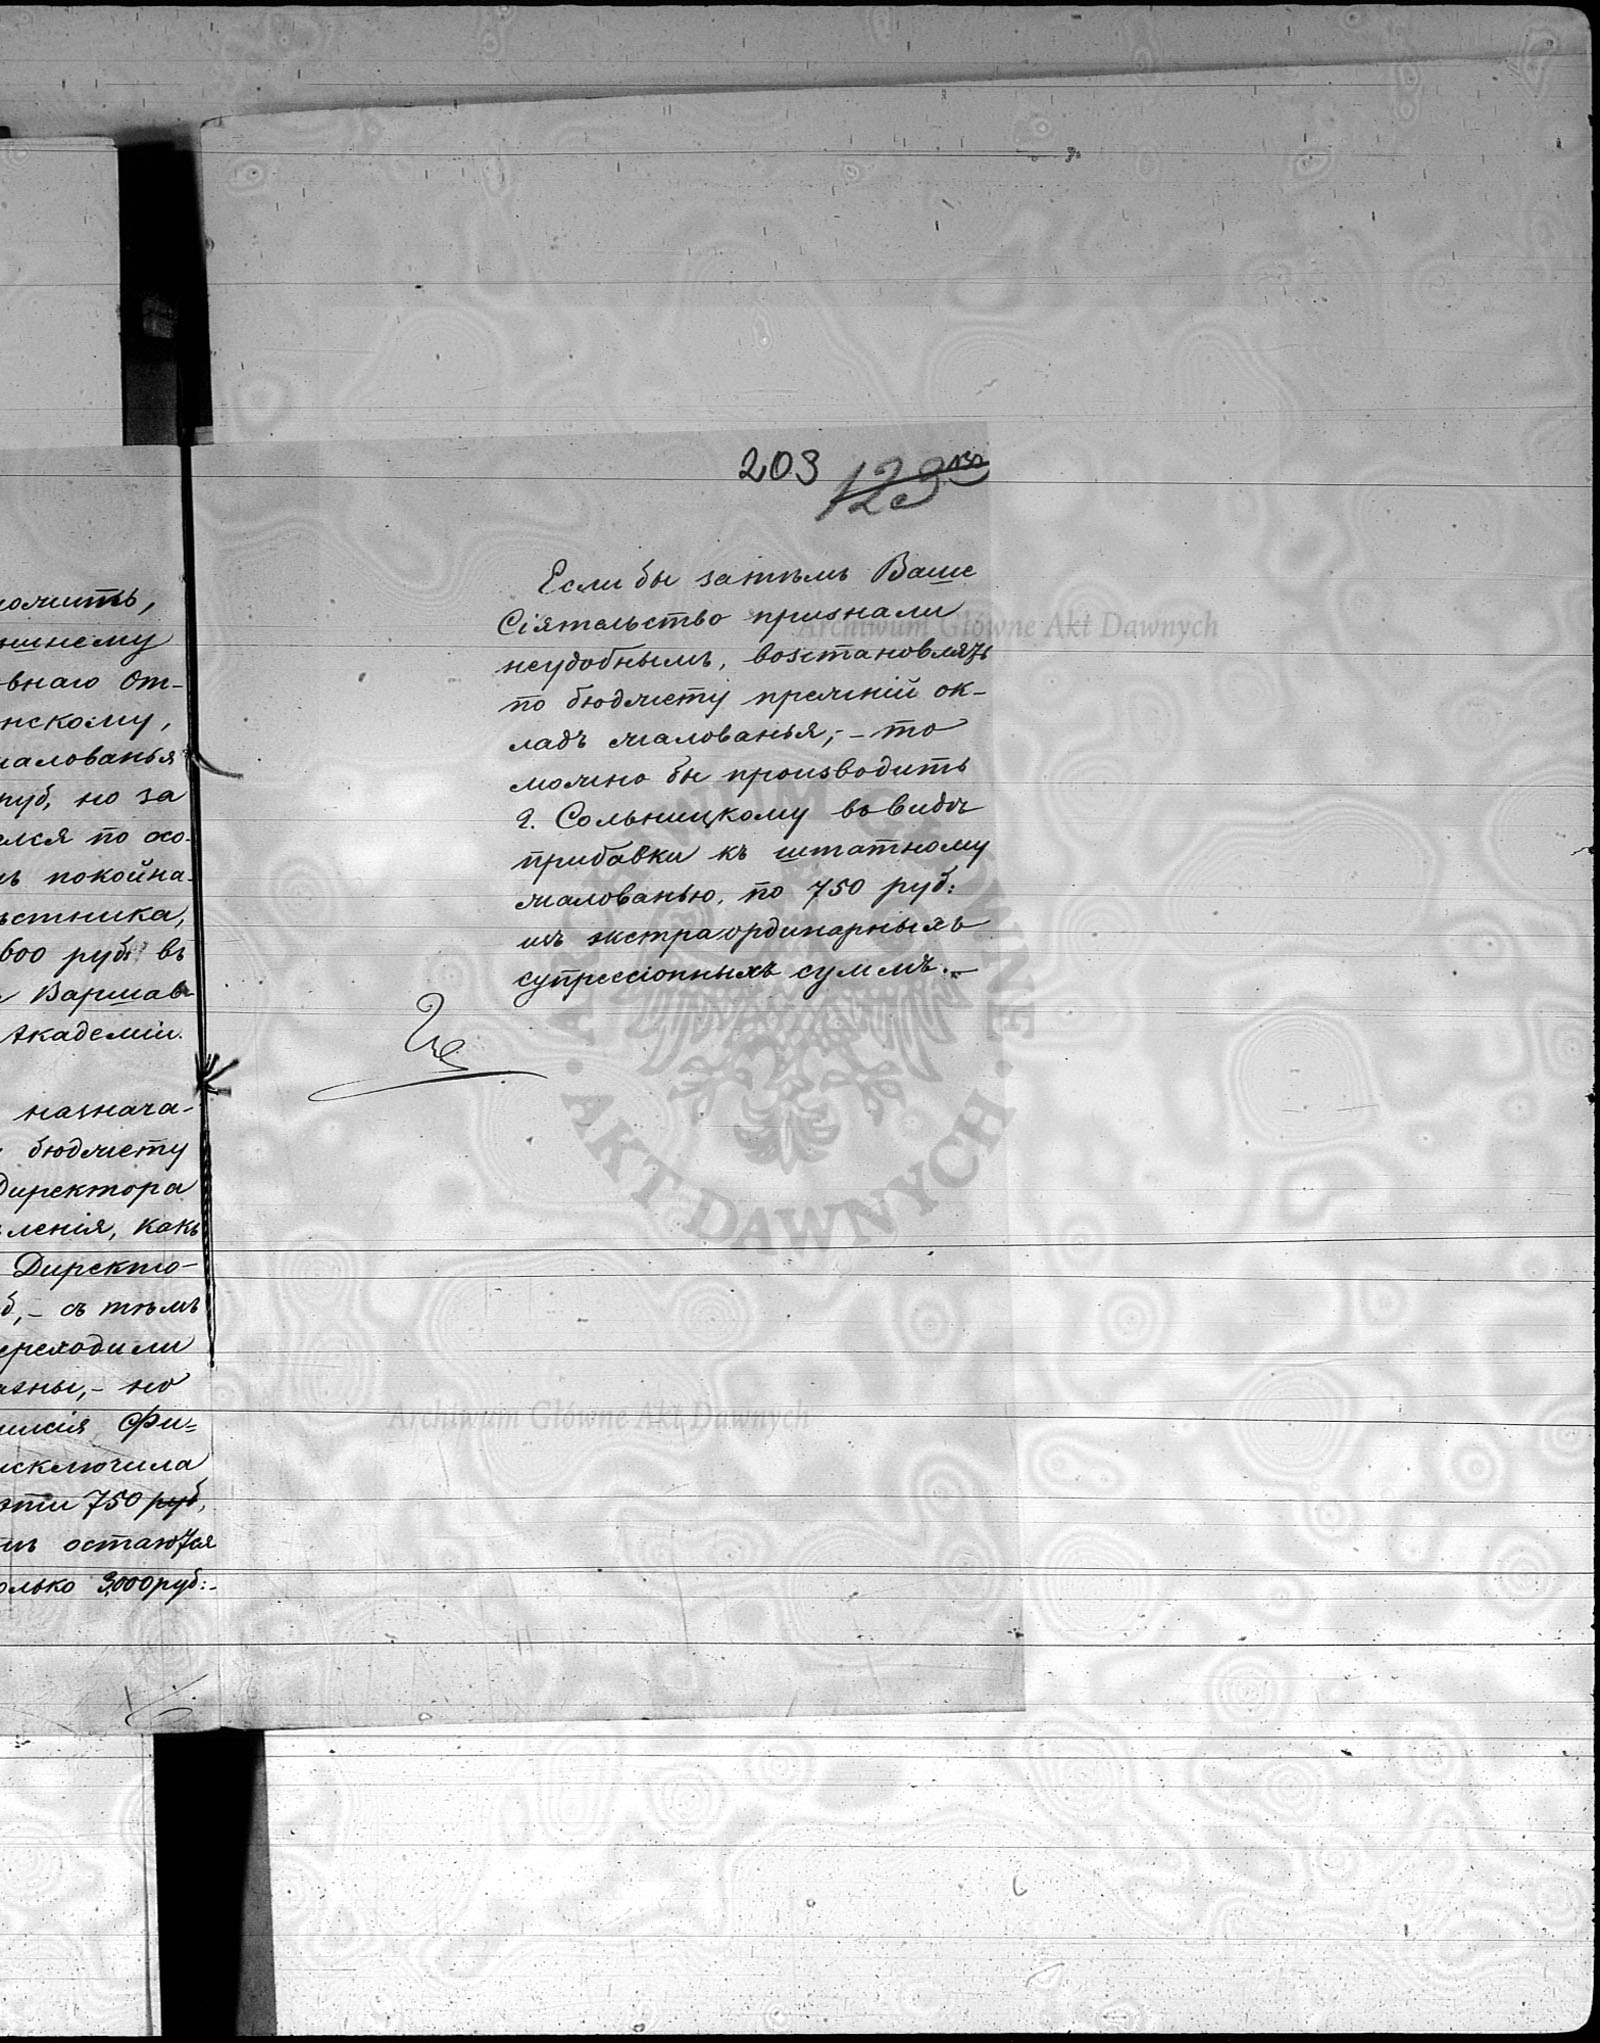 ложить,
шнему
внаго От-
нскому,
жалованья
руб, но за
лся по осо-
ъ покойна-
ѣстника,
600 руб: въ
Варшав-
Академіи.
назнача-
бюджету
Директора
ленія, какъ
Директо-
б,- съ тѣмъ
ереходили
ны,- но
Фи=
исключила
эти 750 руб,
остаются
олько 3,000 руб:-
203 123
Если бы затѣмъ Ваше
Сіятельство признали
неудобнымъ, возстановлять
по бюджету прежній ок-
ладъ жалованья,- то
можно бы производить
Г. Сольницкому въ видѣ
прибавки къ штатному
жалованью, по 750 руб:
изъ экстраординарныхъ
супрессіонныхъ суммъ.-
Archiwum Główne Akt Dawnych
ARCHIWUM GŁÓWNE · AKT DAWNYCH ·
Archiwum Główne Akt Dawnych